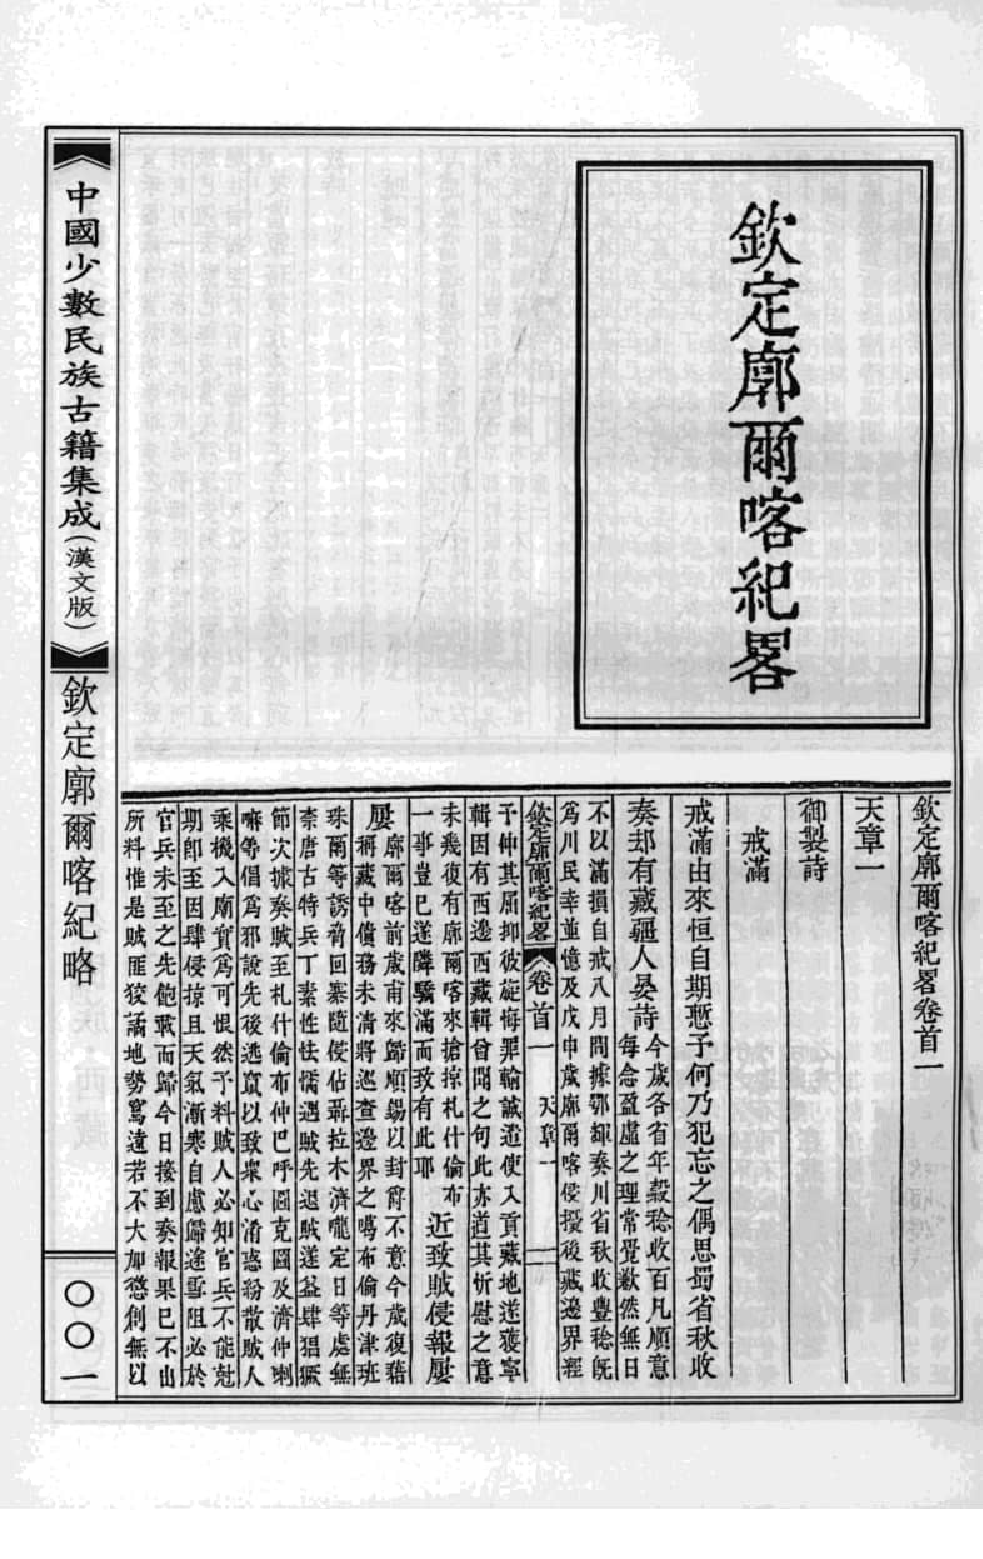 欽定廓爾喀紀畧
欽定廓爾喀紀畧卷首一
天章一
御製詩
戒滿
戒滿由來恒自期慙予何乃犯忘之偶思蜀省秋收
奏却有藏疆人晏詩
今歲各省年穀稔收百凡順意
每念盈虛之理常覺歉然無日
不以滿損自戒八月間據鄂輝奏川省秋收豊稔旣
爲川民幸並憶及戊申歲廓爾喀侵擾後藏邊界經
欽定廓爾喀紀畧 卷首一 天章一 一
予伸其屈抑彼旋悔罪輸誠遣使入貢藏地遂獲寧
輯因有西邊西藏輯曾聞之句此亦道其忻慰之意
未幾復有廓爾喀來搶掠札什倫布
一事豈已遂隣驕滿而致有此耶
近致賊侵報屢
屢
廓爾喀前歲甫來歸順錫以封爵不意今歲復藉
稱藏中債務未清將巡查邊界之噶布倫丹津班
珠爾等誘脅回寨隨侵佔聶拉木濟嚨定日等處無
柰唐古特兵丁素性怯懦遇賊先退賊遂益肆猖獗
節次據奏賊至札什倫布仲巴呼圖克圖及濟仲喇
嘛等倡爲邪說先後逃竄以致衆心淆惑紛散賊人
乘機入廟實爲可恨然予料賊人必知官兵不能尅
期卽至因肆侵掠且天氣漸寒自慮歸途雪阻必於
官兵未至之先飽颺而歸今日接到奏報果已不出
所料惟是賊匪狡譎地勢寫遠若不大加懲創無以
中國少數民族古籍集成(漢文版)
欽定廓爾喀紀略
〇〇一